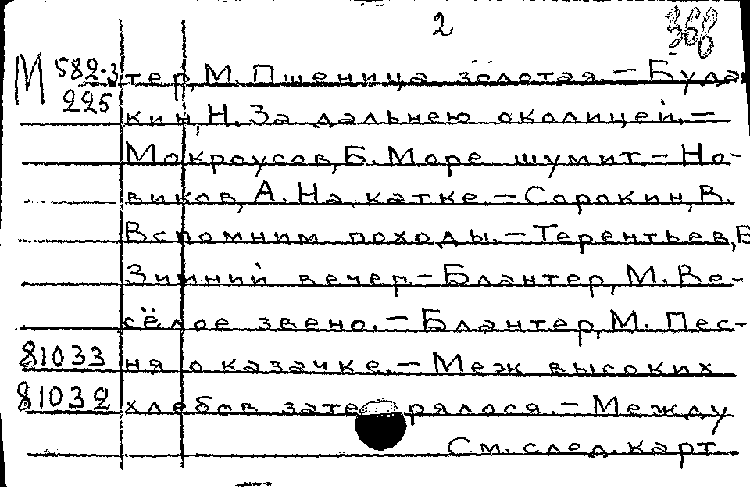 2
368
М 582.3 тер, М. Пшеница золотая. – Буда
225 кин, Н. За дальнею околицей. –
Мокроусов, Б. Море шумит. – Но-
виков, А. На катке. – Сорокин, В.
Вспомним походы. – Терентьев, Б
Зимний вечер. – Блантер, М. Ве-
сёлое звено. – Блантер, М. Пес-
81033 ня о казачке. – Меж высоких
81032 хлебов затерялося. – Между
См. след. карт.